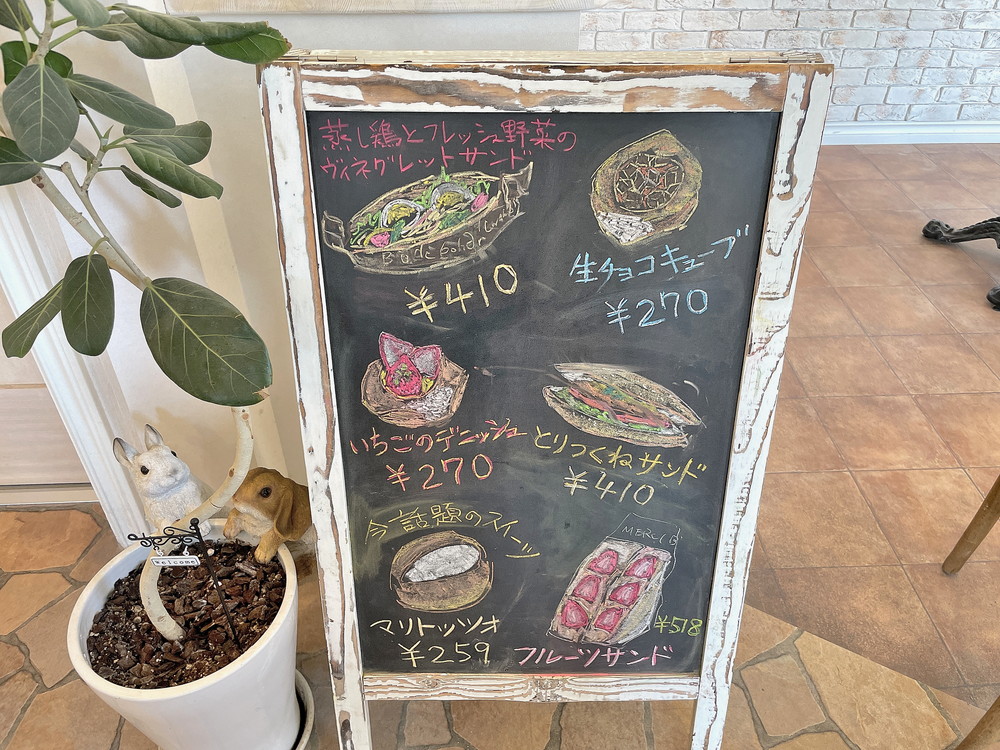 蒸し鶏とフレッシュ野菜の
ヴィネグレットサンド
¥410
生チョコキューブ
¥270
いちごのデニッシュ
¥270
とりつくねサンド
¥410
今話題のスイーツ
マリトッツオ
¥259
¥518
フルーツサンド
welcome